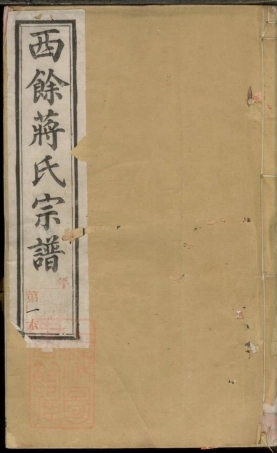 西餘蔣氏宗譜
第一本